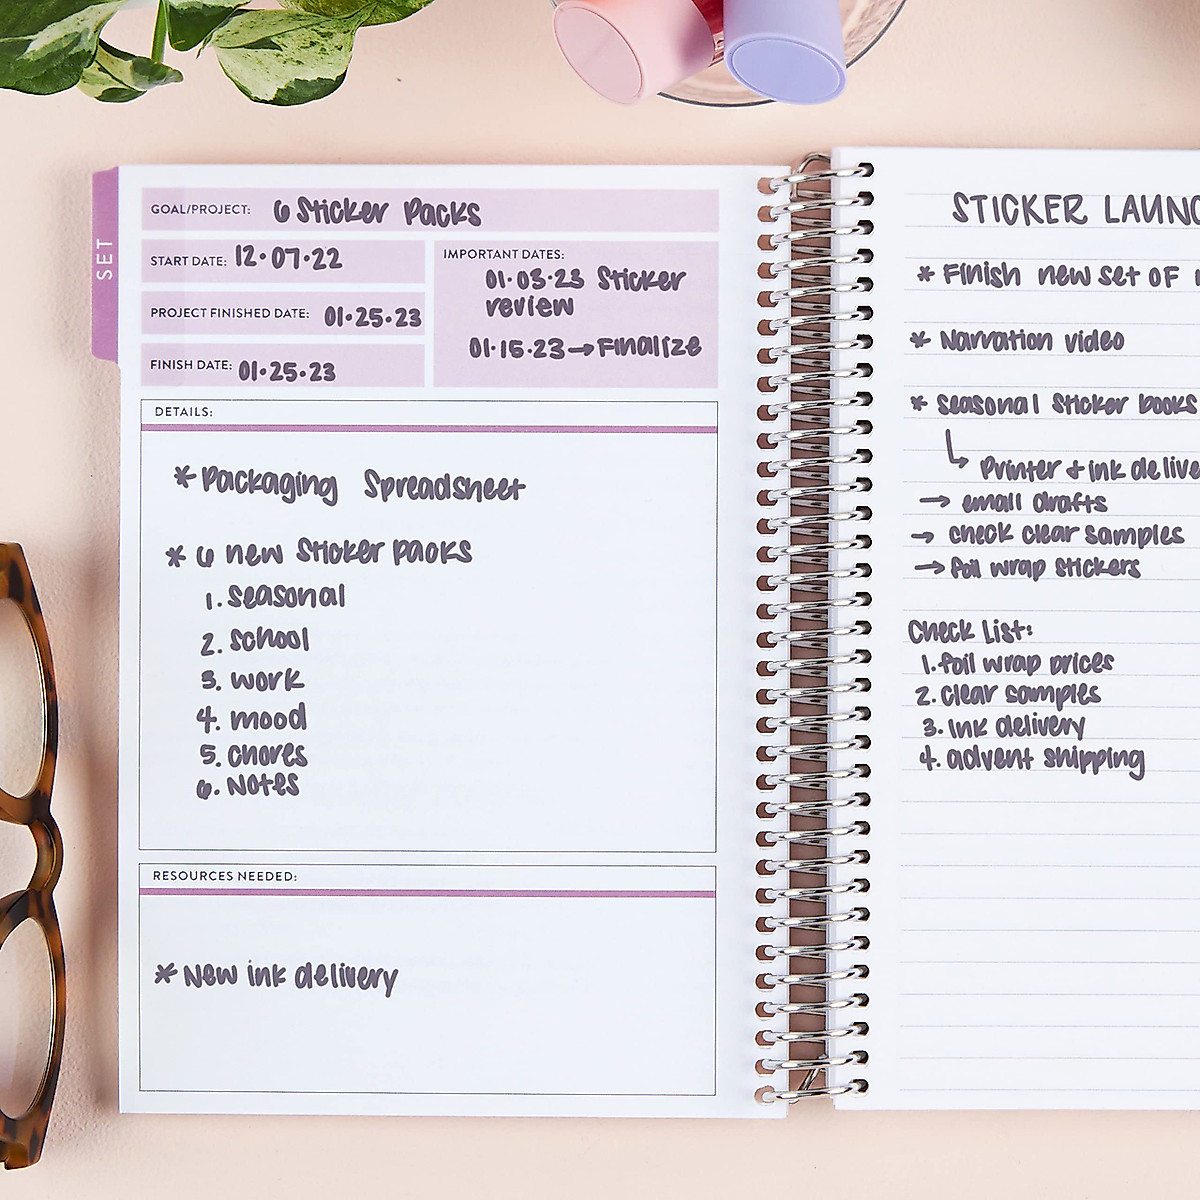 SET
GOAL/PROJECT: 6 Sticker Packs
START DATE: 12.07.22
PROJECT FINISHED DATE: 01.25.23
FINISH DATE: 01.25.23
IMPORTANT DATES:
01.03.23 Sticker
review
01.15.23→Finalize
DETAILS:
* Packaging Spreadsheet
* 6 new Sticker packs
1. seasonal
2. school
3. work
4. mood
5. chores
6. Notes
RESOURCES NEEDED:
* New ink delivery
STICKER LAUNC
* Finish new set of
* Narration video
* Seasonal Sticker books
Printer + ink delive
→ email drafts
→ check clear samples
→ foil wrap stickers
Check List:
1. foil wrap prices
2. clear samples
3. ink delivery
4. advent shipping